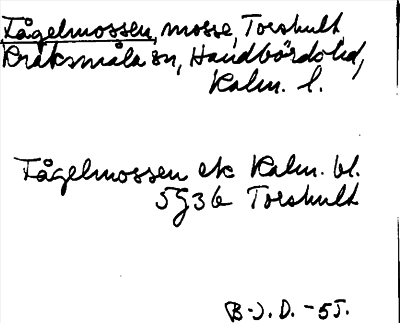 Fågelmossen, mosse, Torshult
Kråksmåla sn, Handbörds hd,
Kalm. l.
Fågelmossen ek Kalm. bl.
5G3b Torshult
B-J. D. -55.